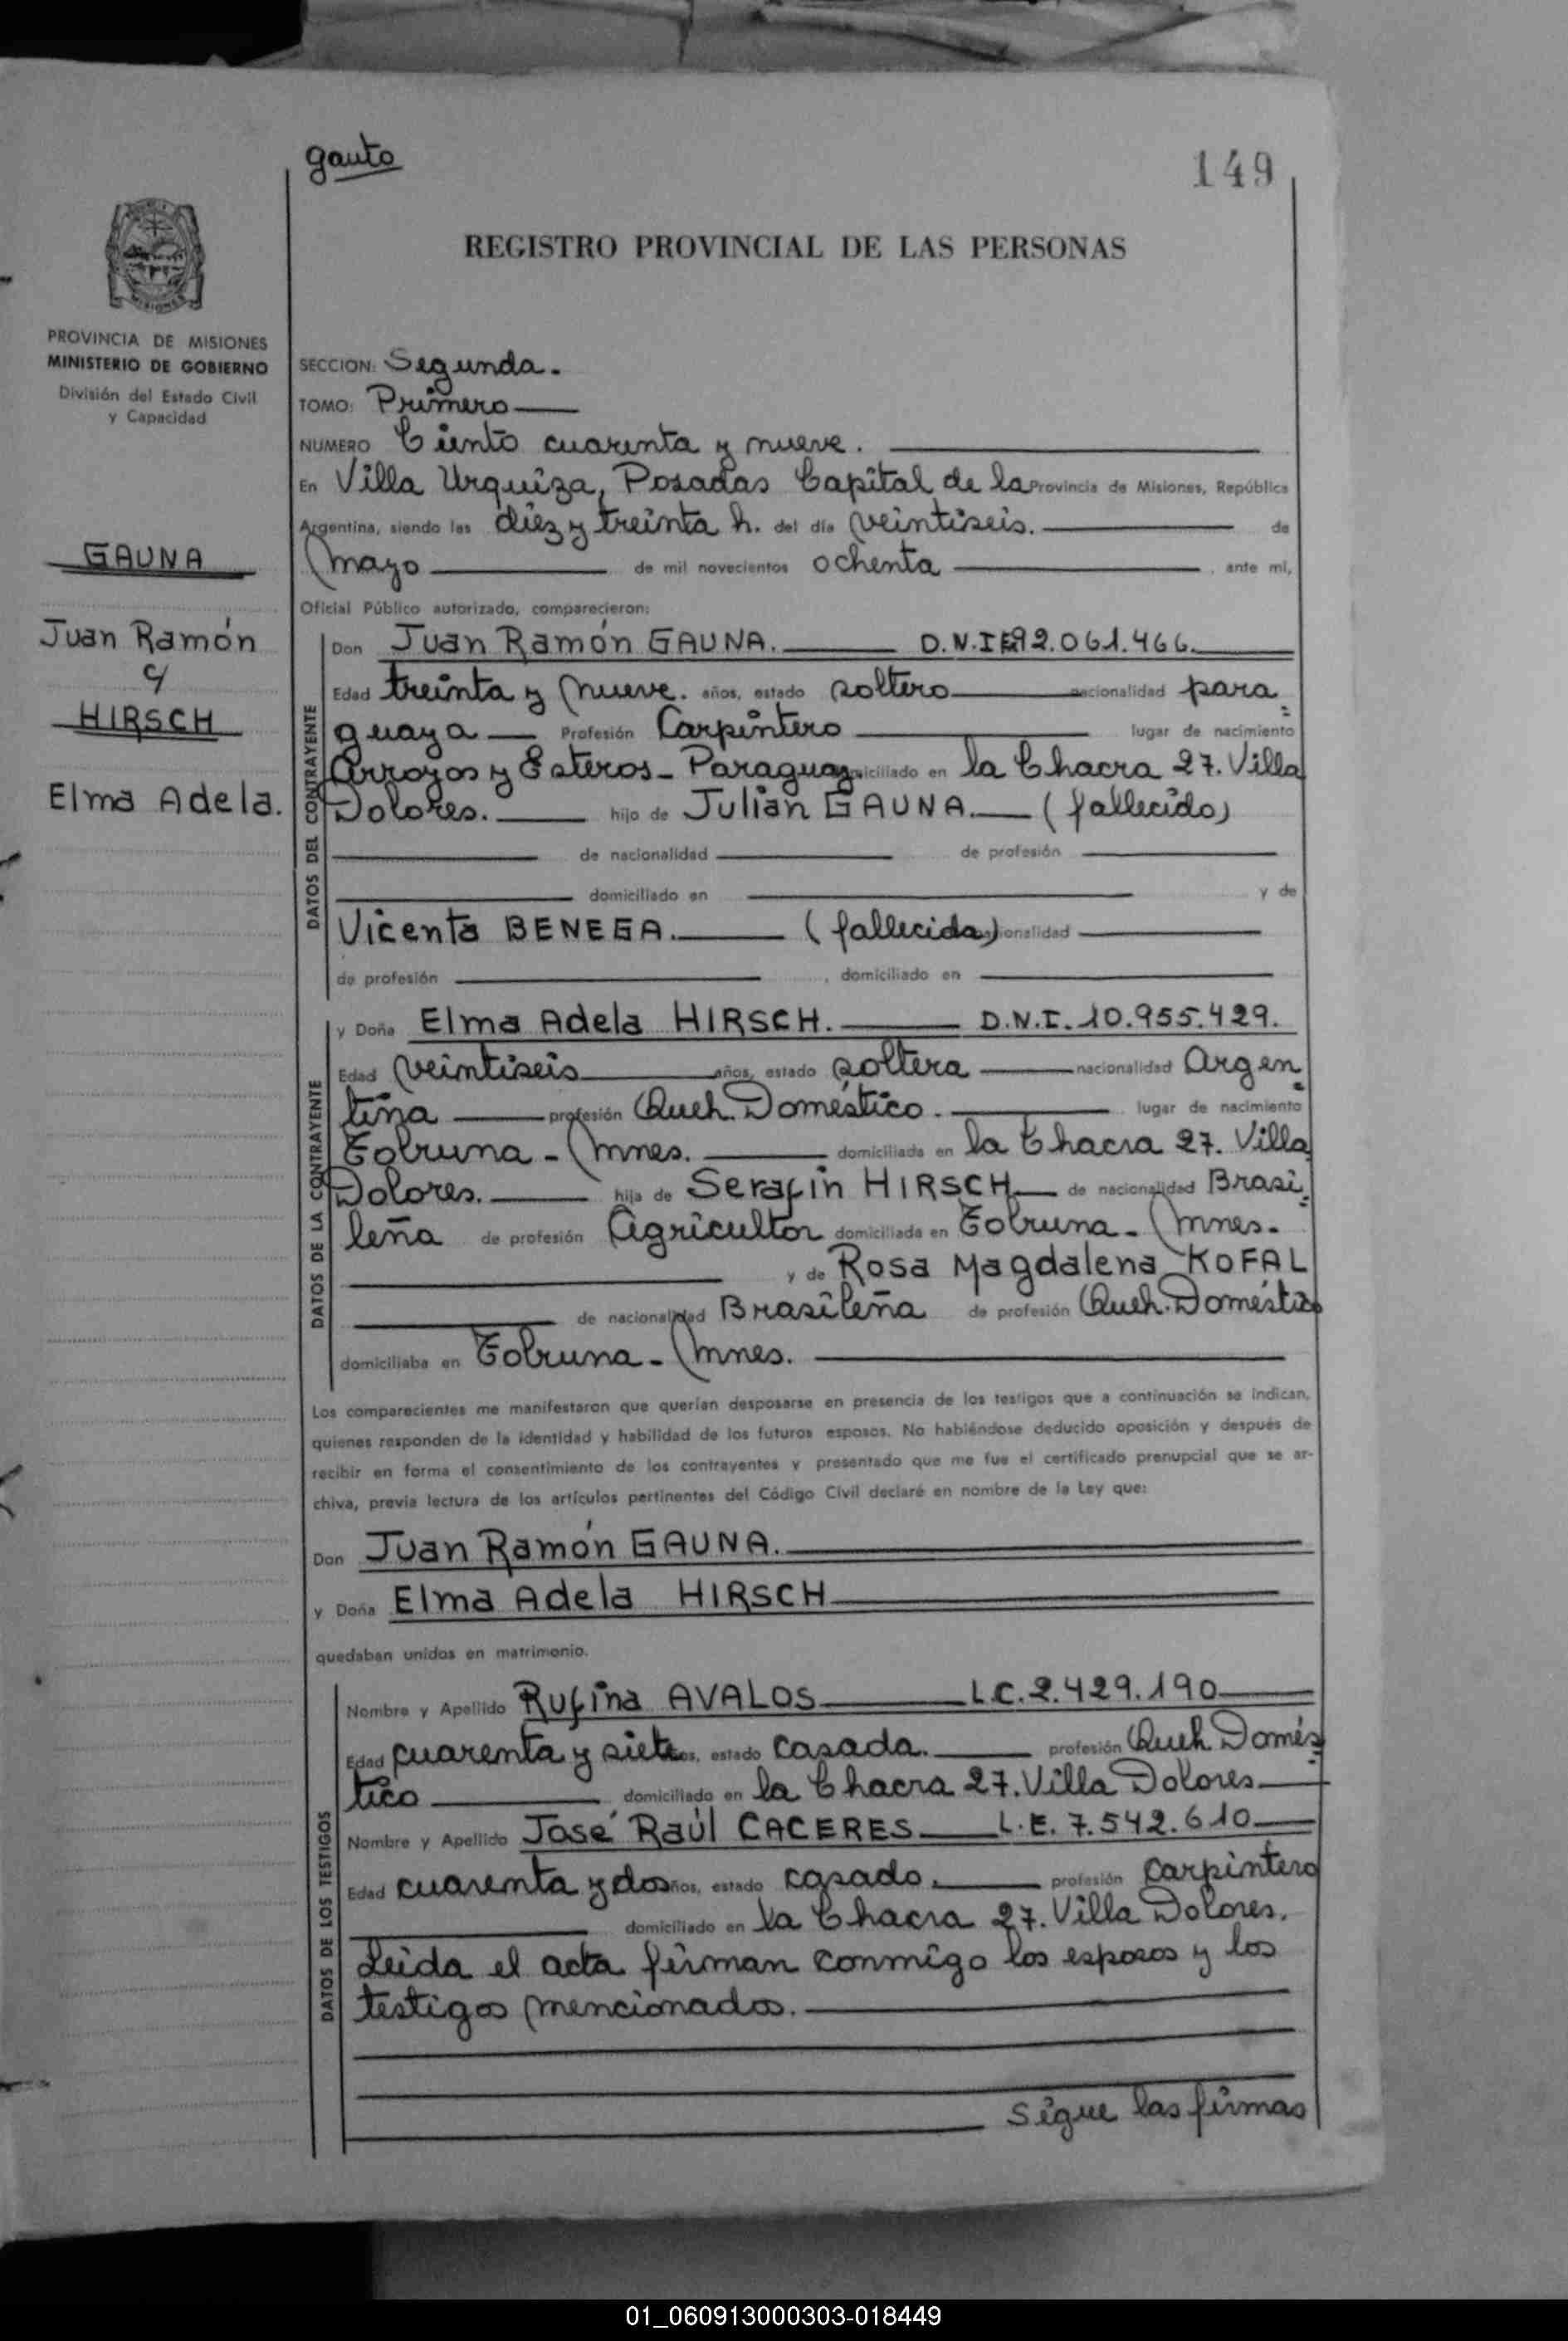 gauto
149
REGISTRO PROVINCIAL DE LAS PERSONAS
MISIONES
PROVINCIA DE MISIONES
MINISTERIO DE GOBIERNO
División del Estado Civil
y Capacidad
GAUNA
Juan Ramón
c/
HIRSCH
Elma Adela.
SECCION: Segunda.
TOMO: Primero
NUMERO Ciento cuarenta y nueve.
En Villa Urquiza, Posadas Capital de la Provincia de Misiones, República
Argentina, siendo las diez y treinta h. del día veintiseis. de
mayo de mil novecientos ochenta , ante mí,
Oficial Público autorizado, comparecieron:
DATOS DEL CONTRAYENTE
Don Juan Ramón GAUNA. D.N.I 92.061.466.
Edad treinta y nueve. años, estado soltero nacionalidad para
guaya Profesión Carpintero lugar de nacimiento
Arroyos y Esteros - Paraguay domiciliado en la Chacra 27. Villa
Dolores. hijo de Julian GAUNA. (fallecido)
de nacionalidad de profesión
domiciliado en y de
Vicenta BENEGA. (fallecida) nacionalidad
de profesión , domiciliado en
DATOS DE LA CONTRAYENTE
y Doña Elma Adela HIRSCH. D.N.I. 10.955.429.
Edad veintiseis años, estado soltera nacionalidad Argen
tina profesión Queh. Doméstico. lugar de nacimiento
Tobuna - Mnes. domiciliada en la Chacra 27. Villa
Dolores. hija de Serafin HIRSCH de nacionalidad Brasi
leña de profesión Agricultor domiciliada en Tobuna - Mnes.
y de Rosa Magdalena KOFAL
de nacionalidad Brasileña de profesión Queh. Doméstico
domiciliaba en Tobuna - Mnes.
Los comparecientes me manifestaron que querían desposarse en presencia de los testigos que a continuación se indican,
quienes responden de la identidad y habilidad de los futuros esposos. No habiéndose deducido oposición y después de
recibir en forma el consentimiento de los contrayentes y presentado que me fue el certificado prenupcial que se ar-
chiva, previa lectura de los artículos pertinentes del Código Civil declaré en nombre de la Ley que:
Don Juan Ramón GAUNA.
y Doña Elma Adela HIRSCH
quedaban unidos en matrimonio.
DATOS DE LOS TESTIGOS
Nombre y Apellido Rufina AVALOS L.C. 2.429.190
Edad cuarenta y siete años, estado casada. profesión Queh Domés
tico domiciliado en la Chacra 27. Villa Dolores
Nombre y Apellido José Raúl CACERES L.E. 7.542.610
Edad cuarenta y dos años, estado casado. profesión carpintero
domiciliado en la Chacra 27. Villa Dolores.
Leida el acta firman conmigo los esposos y los
testigos mencionados.
Sigue las firmas
01_060913000303-018449